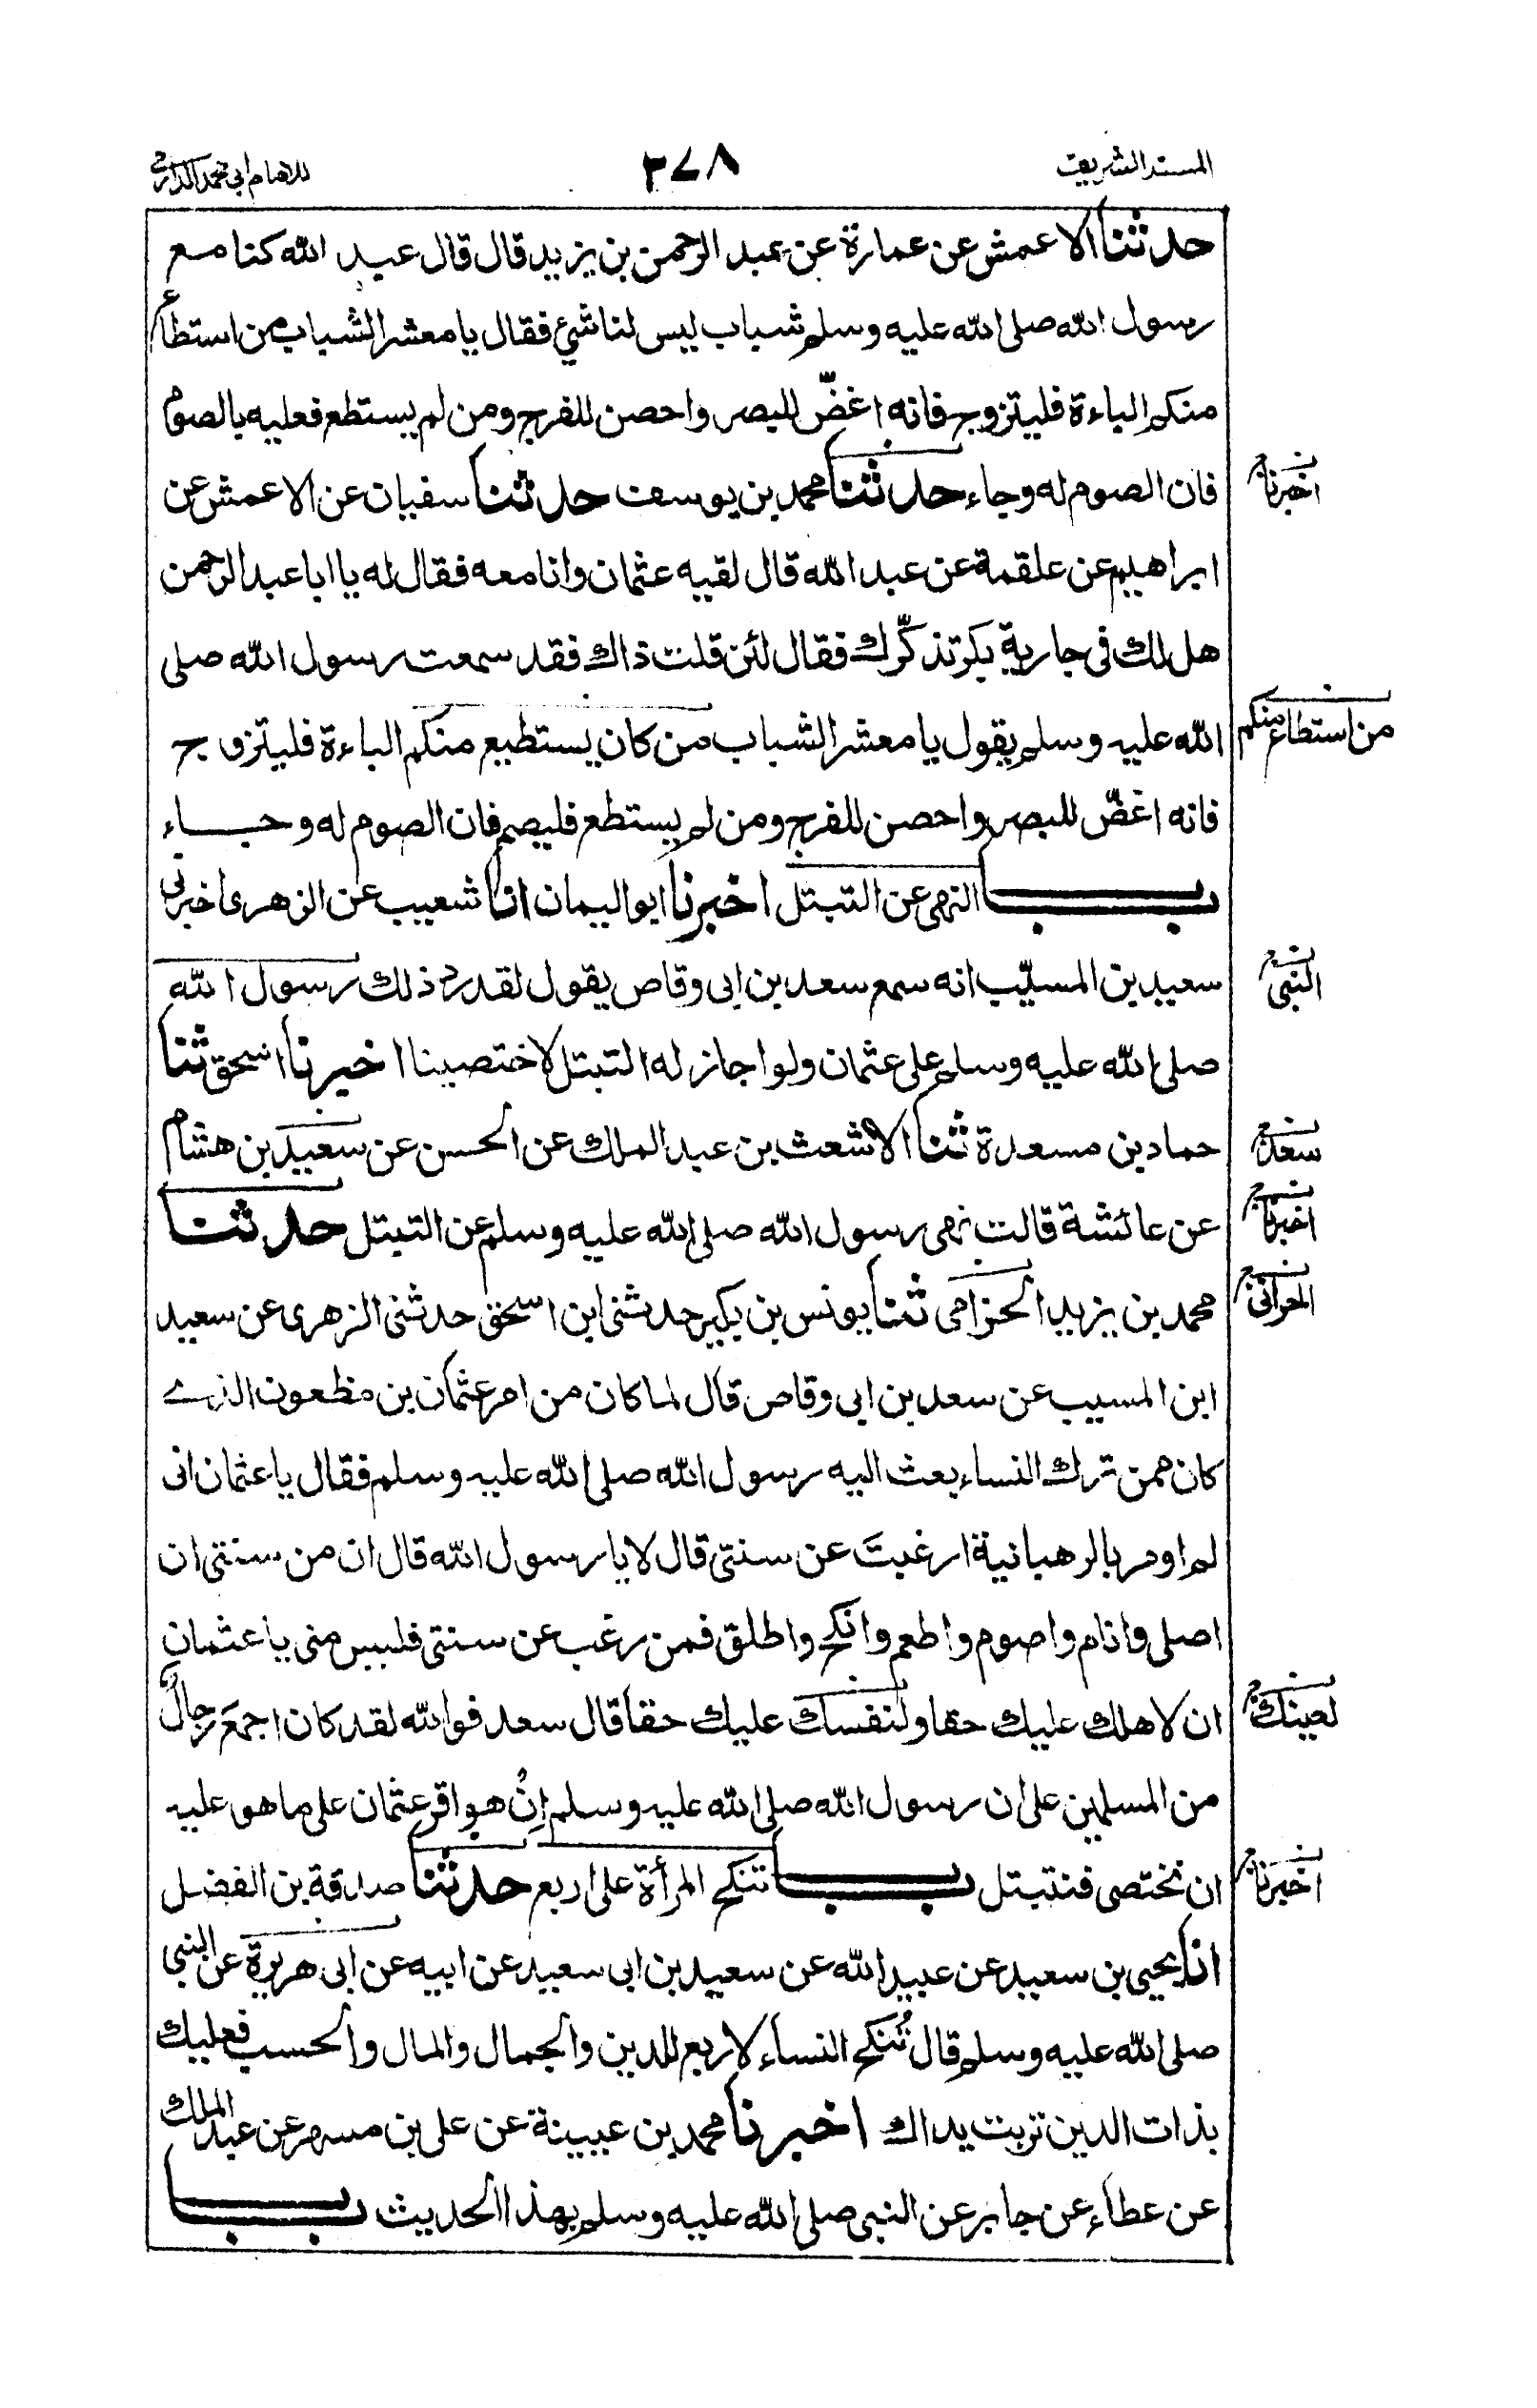 المسند الشريف
٣٧٨
للامام ابي محمد الدارمي
حدثنا الاعمش عن عمارة عن عبد الرحمن بن يزيد قال قال عبد الله كنا مع
رسول الله صلى الله عليه وسلم شباب ليس لنا شئ فقال يا معشر الشباب من استطاع
منكم الباءة فليتزوج فانه اغضّ للبصر واحصن للفرج ومن لم يستطع فعليه بالصوم
فان الصوم له وجاء حدثنا محمد بن يوسف حدثنا سفيان عن الاعمش عن
اخبرنا
ابراهيم عن علقمة عن عبد الله قال لقيه عثمان وانا معه فقال له يا ابا عبد الرحمن
هل لك في جارية بكر تذكّرك فقال لئن قلت ذاك فقد سمعت رسول الله صلى
الله عليه وسلم يقول يا معشر الشباب من كان يستطيع منكم الباءة فليتزوج
من استطاع منكم
فانه اغضّ للبصر واحصن للفرج ومن لم يستطع فليصم فان الصوم له وجاء
باب النهى عن التبتل اخبرنا ابو اليمان انا شعيب عن الزهرى اخبرنى
سعيد بن المسيّب انه سمع سعد بن ابى وقاص يقول لقد رد ذلك رسول الله
النبى
صلى الله عليه وسلم على عثمان ولو اجاز له التبتل لاختصينا اخبرنا اسحق ثنا
حماد بن مسعدة ثنا الاشعث بن عبد الملك عن الحسن عن سعيد بن هشام
سعد
عن عائشة قالت نهى رسول الله صلى الله عليه وسلم عن التبتل حدثنا
اخبرنا
محمد بن يزيد الحزامى ثنا يونس بن بكير حدثنى ابن اسحق حدثنى الزهرى عن سعيد
الحرانى
ابن المسيب عن سعد بن ابى وقاص قال لما كان من امر عثمان بن مظعون الذى
كان ممن ترك النساء بعث اليه رسول الله صلى الله عليه وسلم فقال يا عثمان انى
لم اومر بالرهبانية ارغبتَ عن سنتى قال لا يا رسول الله قال ان من سنتى ان
اصلى وانام واصوم واطعم وانكح واطلق فمن رغب عن سنتى فليس منى يا عثمان
ان لاهلك عليك حقا ولنفسك عليك حقا قال سعد فوالله لقد كان اجمعَ رجالٌ
لعينك
من المسلمين على ان رسول الله صلى الله عليه وسلم اِنْ هو اقر عثمان على ما هو عليه
ان نختصى فنتبتل باب تنكح المرأة على اربع حدثنا صدقة بن الفضل
اخبرنا
انا يحيى بن سعيد عن عبيد الله عن سعيد بن ابى سعيد عن ابيه عن ابى هريرة عن النبى
صلى الله عليه وسلم قال تُنكح النساء لاربع للدين والجمال والمال والحسب فعليك
بذات الدين تربت يداك اخبرنا محمد بن عيينة عن على بن مسهر عن عبد الملك
عن عطاء عن جابر عن النبى صلى الله عليه وسلم بهذا الحديث باب